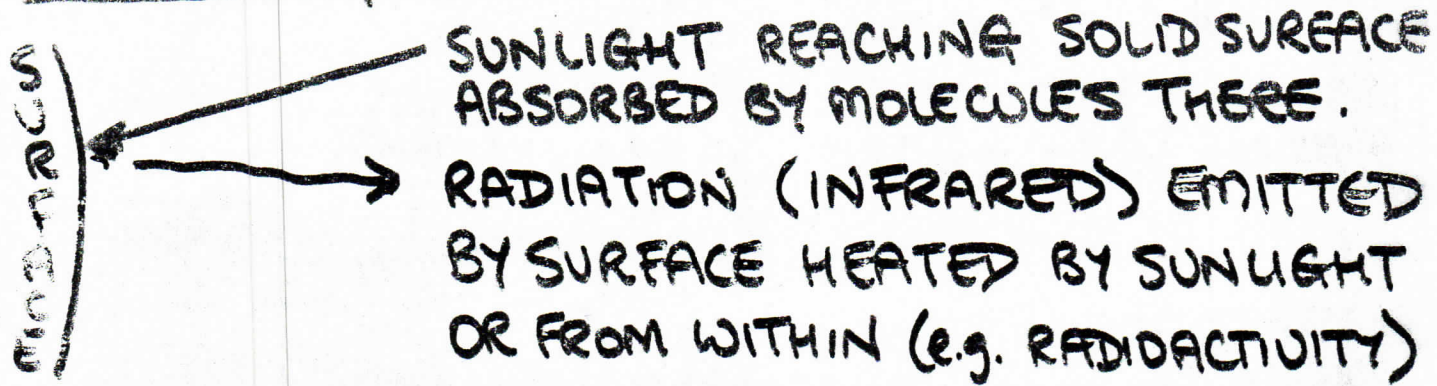 SURFACE
SUNLIGHT REACHING SOLID SURFACE
ABSORBED BY MOLECULES THERE.
RADIATION (INFRARED) EMITTED
BY SURFACE HEATED BY SUNLIGHT
OR FROM WITHIN (e.g. RADIOACTIVITY)